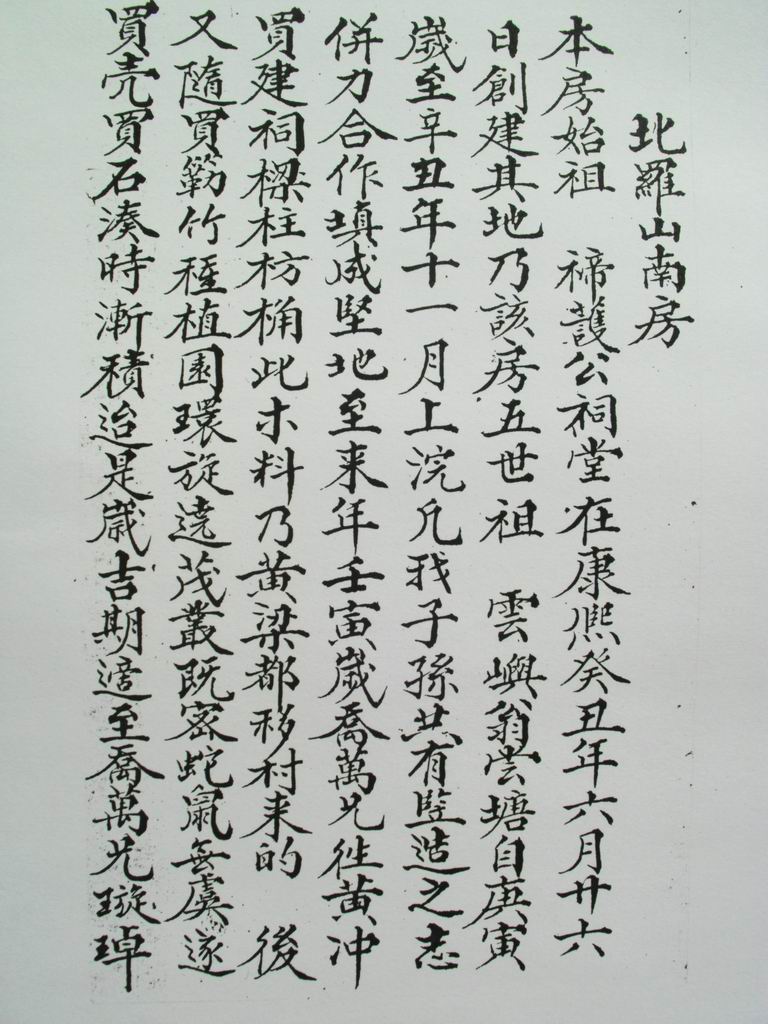 北羅山南房
本房始祖 禘護公祠堂在康熙癸丑年六月廿六
日創建其地乃該房五世祖 雲嶼翁嘗塘自庚寅
歲至辛丑年十一月上浣凡我子孫共有豎造之志
併力合作填成堅地至来年壬寅歲喬萬兄徃黃冲
買建祠樑柱枋桷此木料乃黃梁都移村来的 後
又隨買簕竹種植園環旋遶茂叢既密蛇鼠無虞遂
買壳買石湊時漸積迨是歲吉期適至喬萬兄璇璋